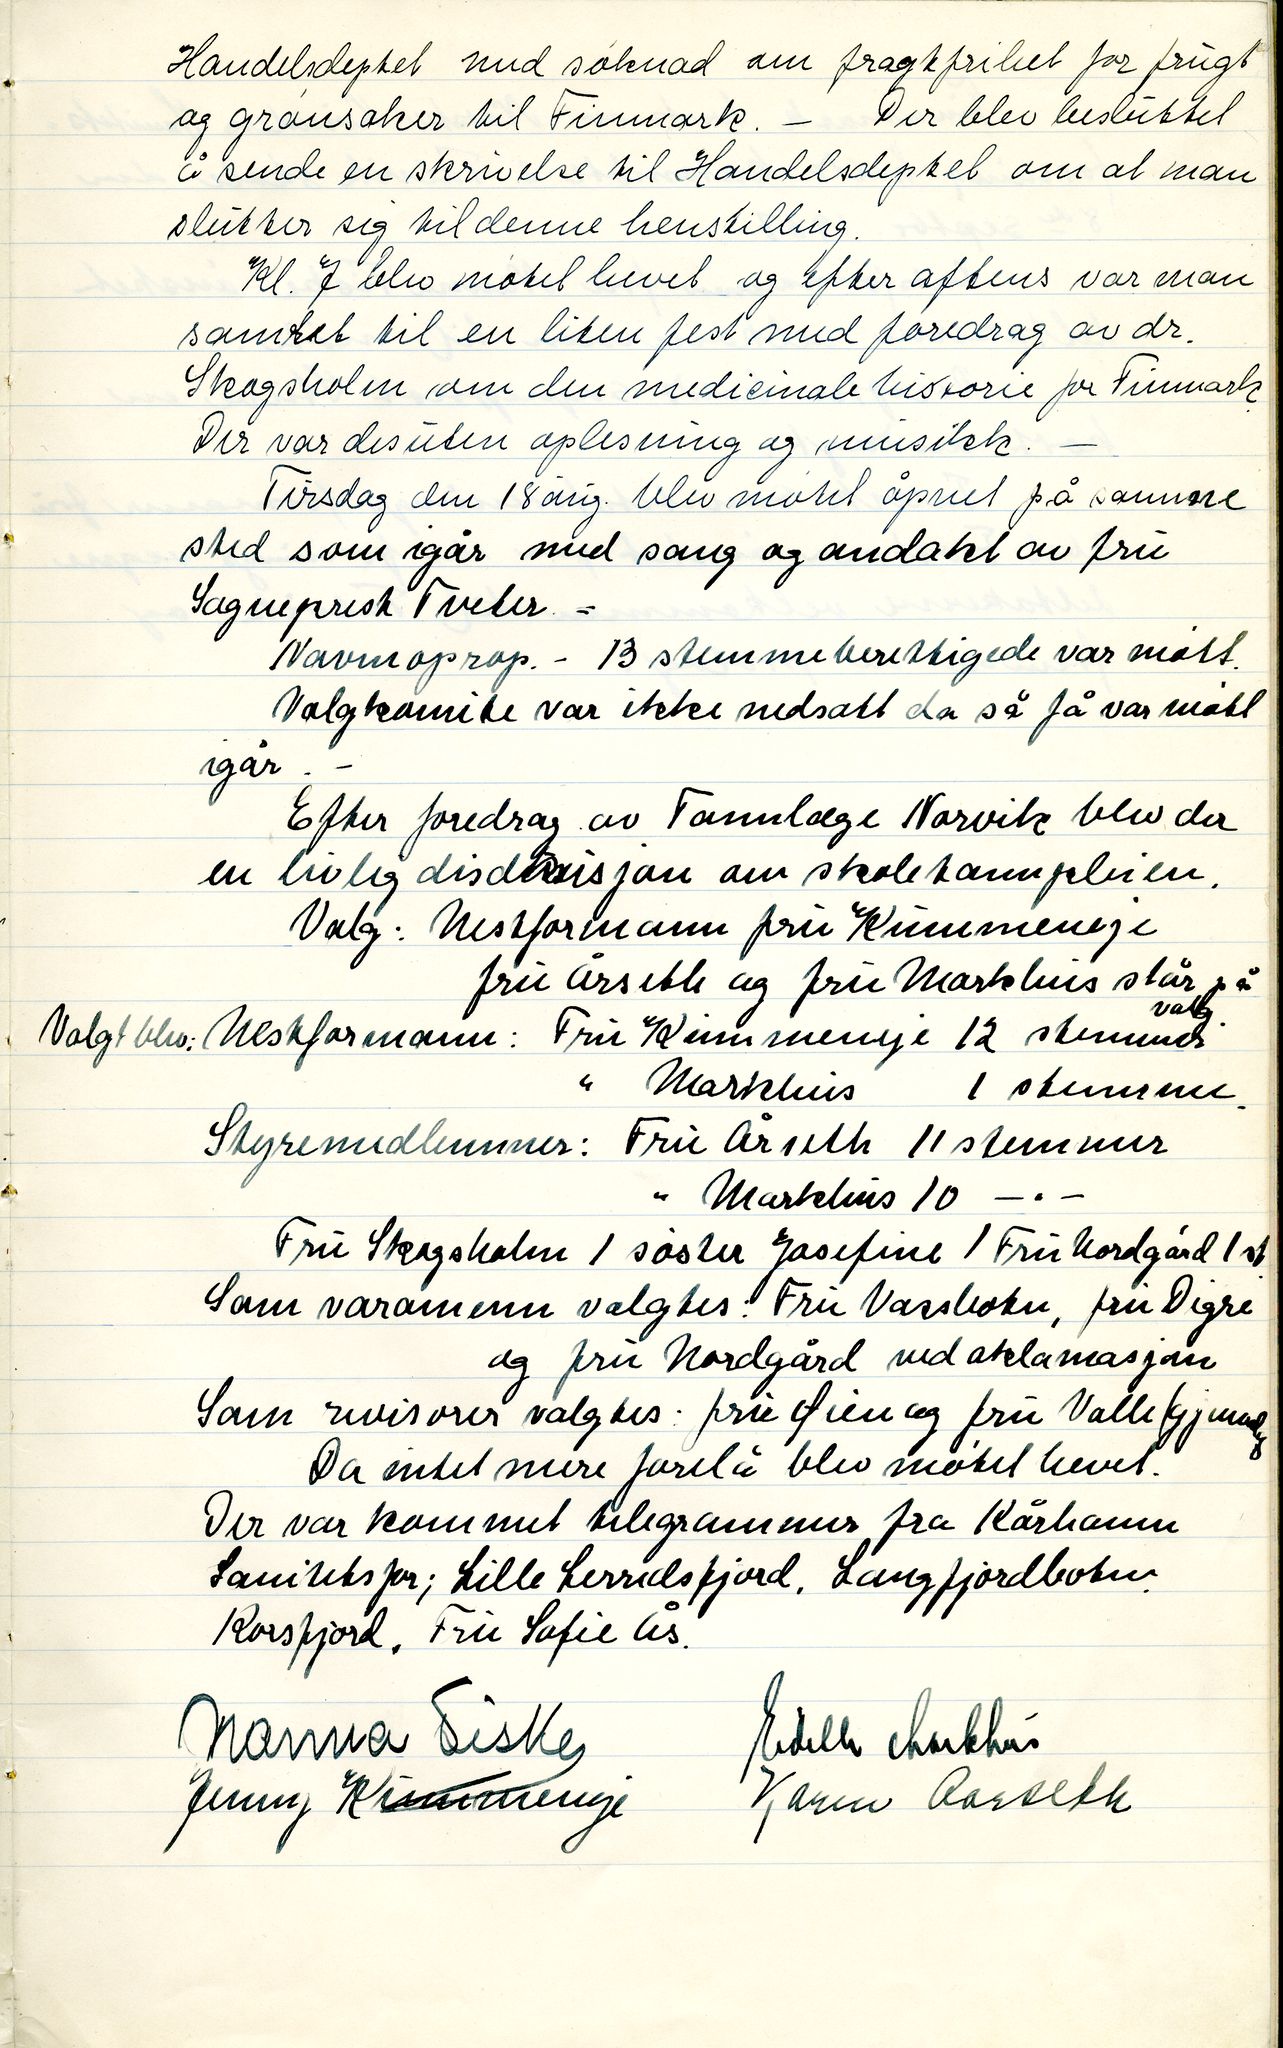 Handelsdeptet med søknad om fragtfrihet for frugt
og grønsaker til Finmark. – Der blev besluttet
å sende en skrivelse til Handelsdeptet om at man
slutter sig til denne henstilling.
Kl. 7 blev møtet hevet og efter aftens var man
samlet til en liten fest med foredrag av dr.
Skogsholm om den medicinale historie for Finmark.
Der var desuten oplesning og musikk. –
Tirsdag den 18 aug. blev møtet åpnet på samme
sted som igår med sang og andakt av fru
Sogneprest Tveter. –
Navneoprop. – 13 stemmeberettigede var møtt.
Valgkomite var ikke nedsatt da så få var møtt
igår. –
Efter foredrag av Tannlæge Norvik blev der
en livlig diskusjon om skoletannpleien.
Valg: Nestformann fru Kummeneje
fru Årseth og fru Markhus står på
valg.
Valgt blev: Nestformann: Fru Kummeneje 12 stemmer
" Markhus 1 stemme.
Styremedlemmer: Fru Årseth 11 stemmer
" Markhus 10 –"–
Fru Skogsholm 1 søster Josefine 1 Fru Nordgård 1 st.
Som varamenn valgtes: Fru Vassbotn, fru Digre
og fru Nordgård ved aklamasjon
Som revisorer valgtes: fru Øien og fru Valle (gjenvalg)
Da intet mere forelå blev møtet hevet.
Der var kommet telegrammer fra Kårhamn
Sanitetsfor; Lille Lerredsfjord, Langfjordbotn,
Korsfjord, Fru Sofie Ås.
Nanna Fiske Edelh Markhus
Jenny Kummeneje Karen Aarseth